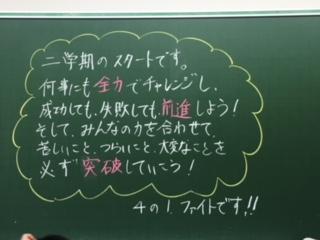 二学期のスタートです。
何事にも全力でチャレンジし、
成功しても、失敗しても、前進しよう！
そして、みんなの力を合わせて、
苦しいこと、つらいこと、大変なことを
必ず突破していこう！
4の1. ファイトです!!